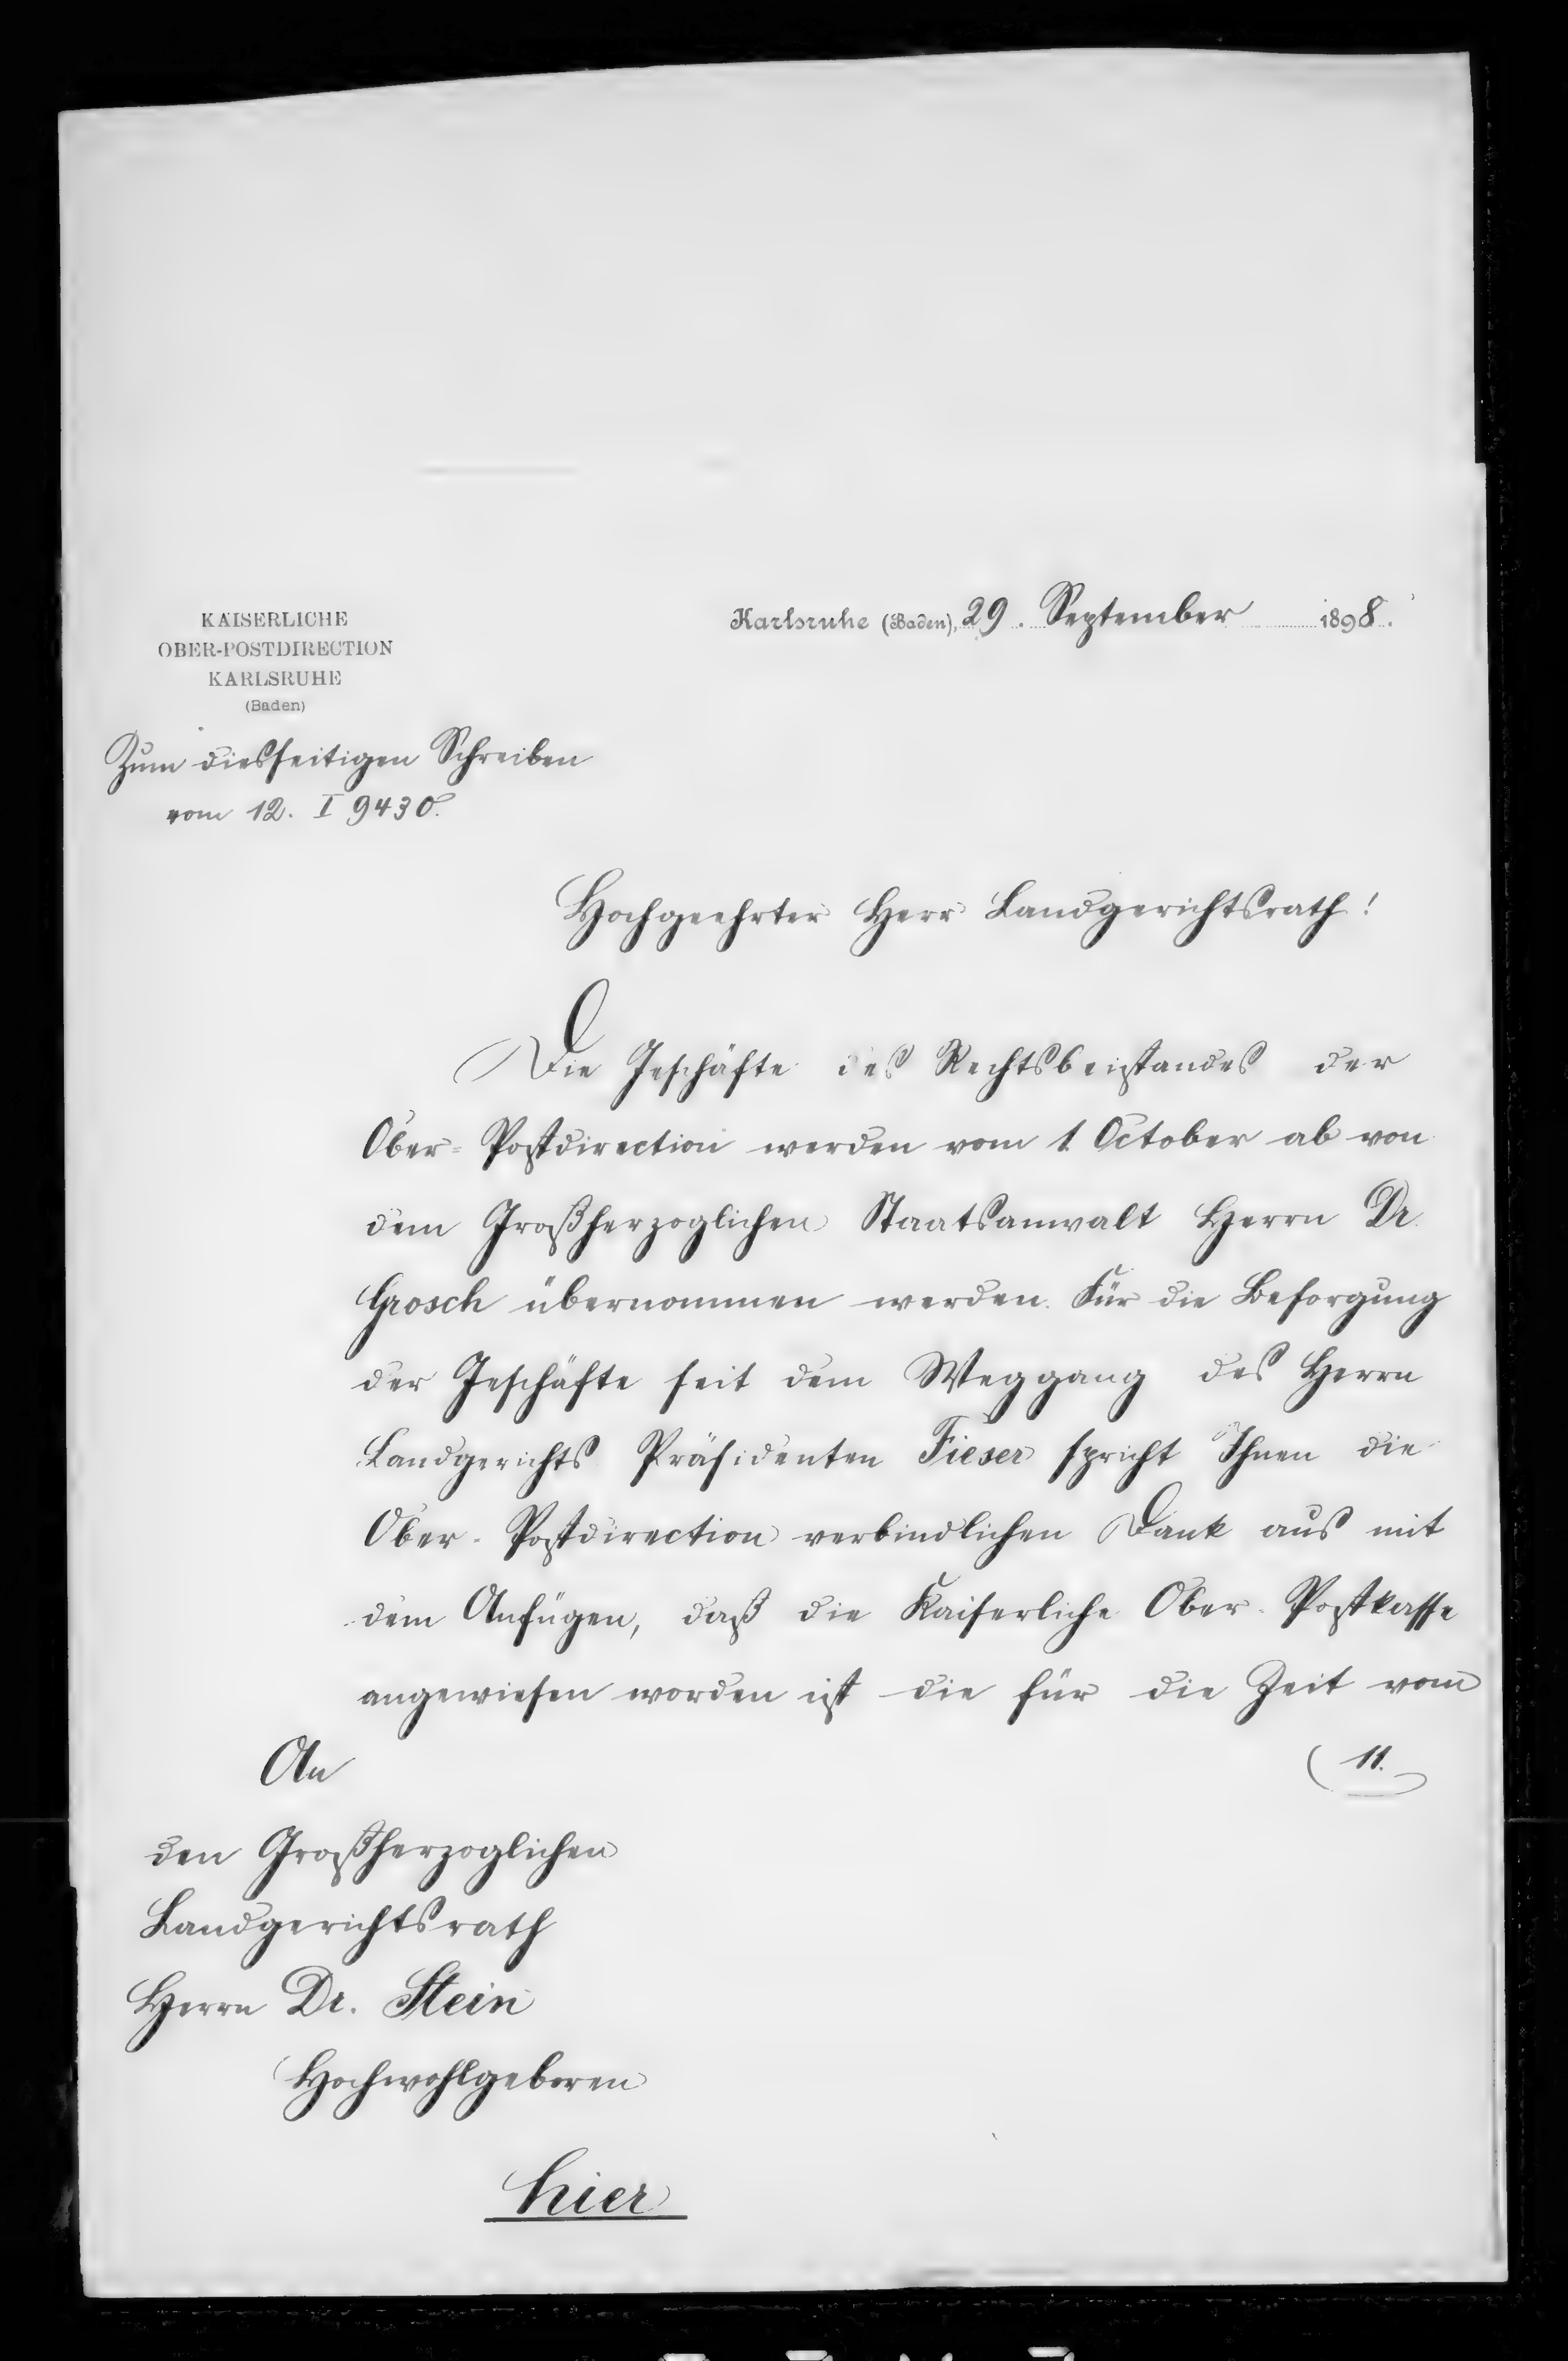 KAISERLICHE
OBER-POSTDIRECTION
KARLSRUHE
(Baden)
Karlsruhe (Baden), 29. September 1898.
Zum diesseitigen Schreiben
vom 12. I 9430.
Hochgeehrter Herr Landgerichtsrath!
Die Geschäfte des Rechtsbeistandes der
Ober-Postdirection werden vom 1. October ab von
dem Großherzoglichen Staatsanwalt Herrn Dr.
Grosch übernommen werden. Für die Besorgung
der Geschäfte seit dem Weggang des Herrn
Landgerichts Präsidenten Fieser spricht Ihnen die
Ober-Postdirection verbindlichen Dank aus mit
dem Anfügen, daß die Kaiserliche Ober-Postkasse
angewiesen worden ist die für die Zeit vom
11.
An
den Großherzoglichen
Landgerichtsrath
Herrn Dr. Stein
Hochwohlgeboren
hier